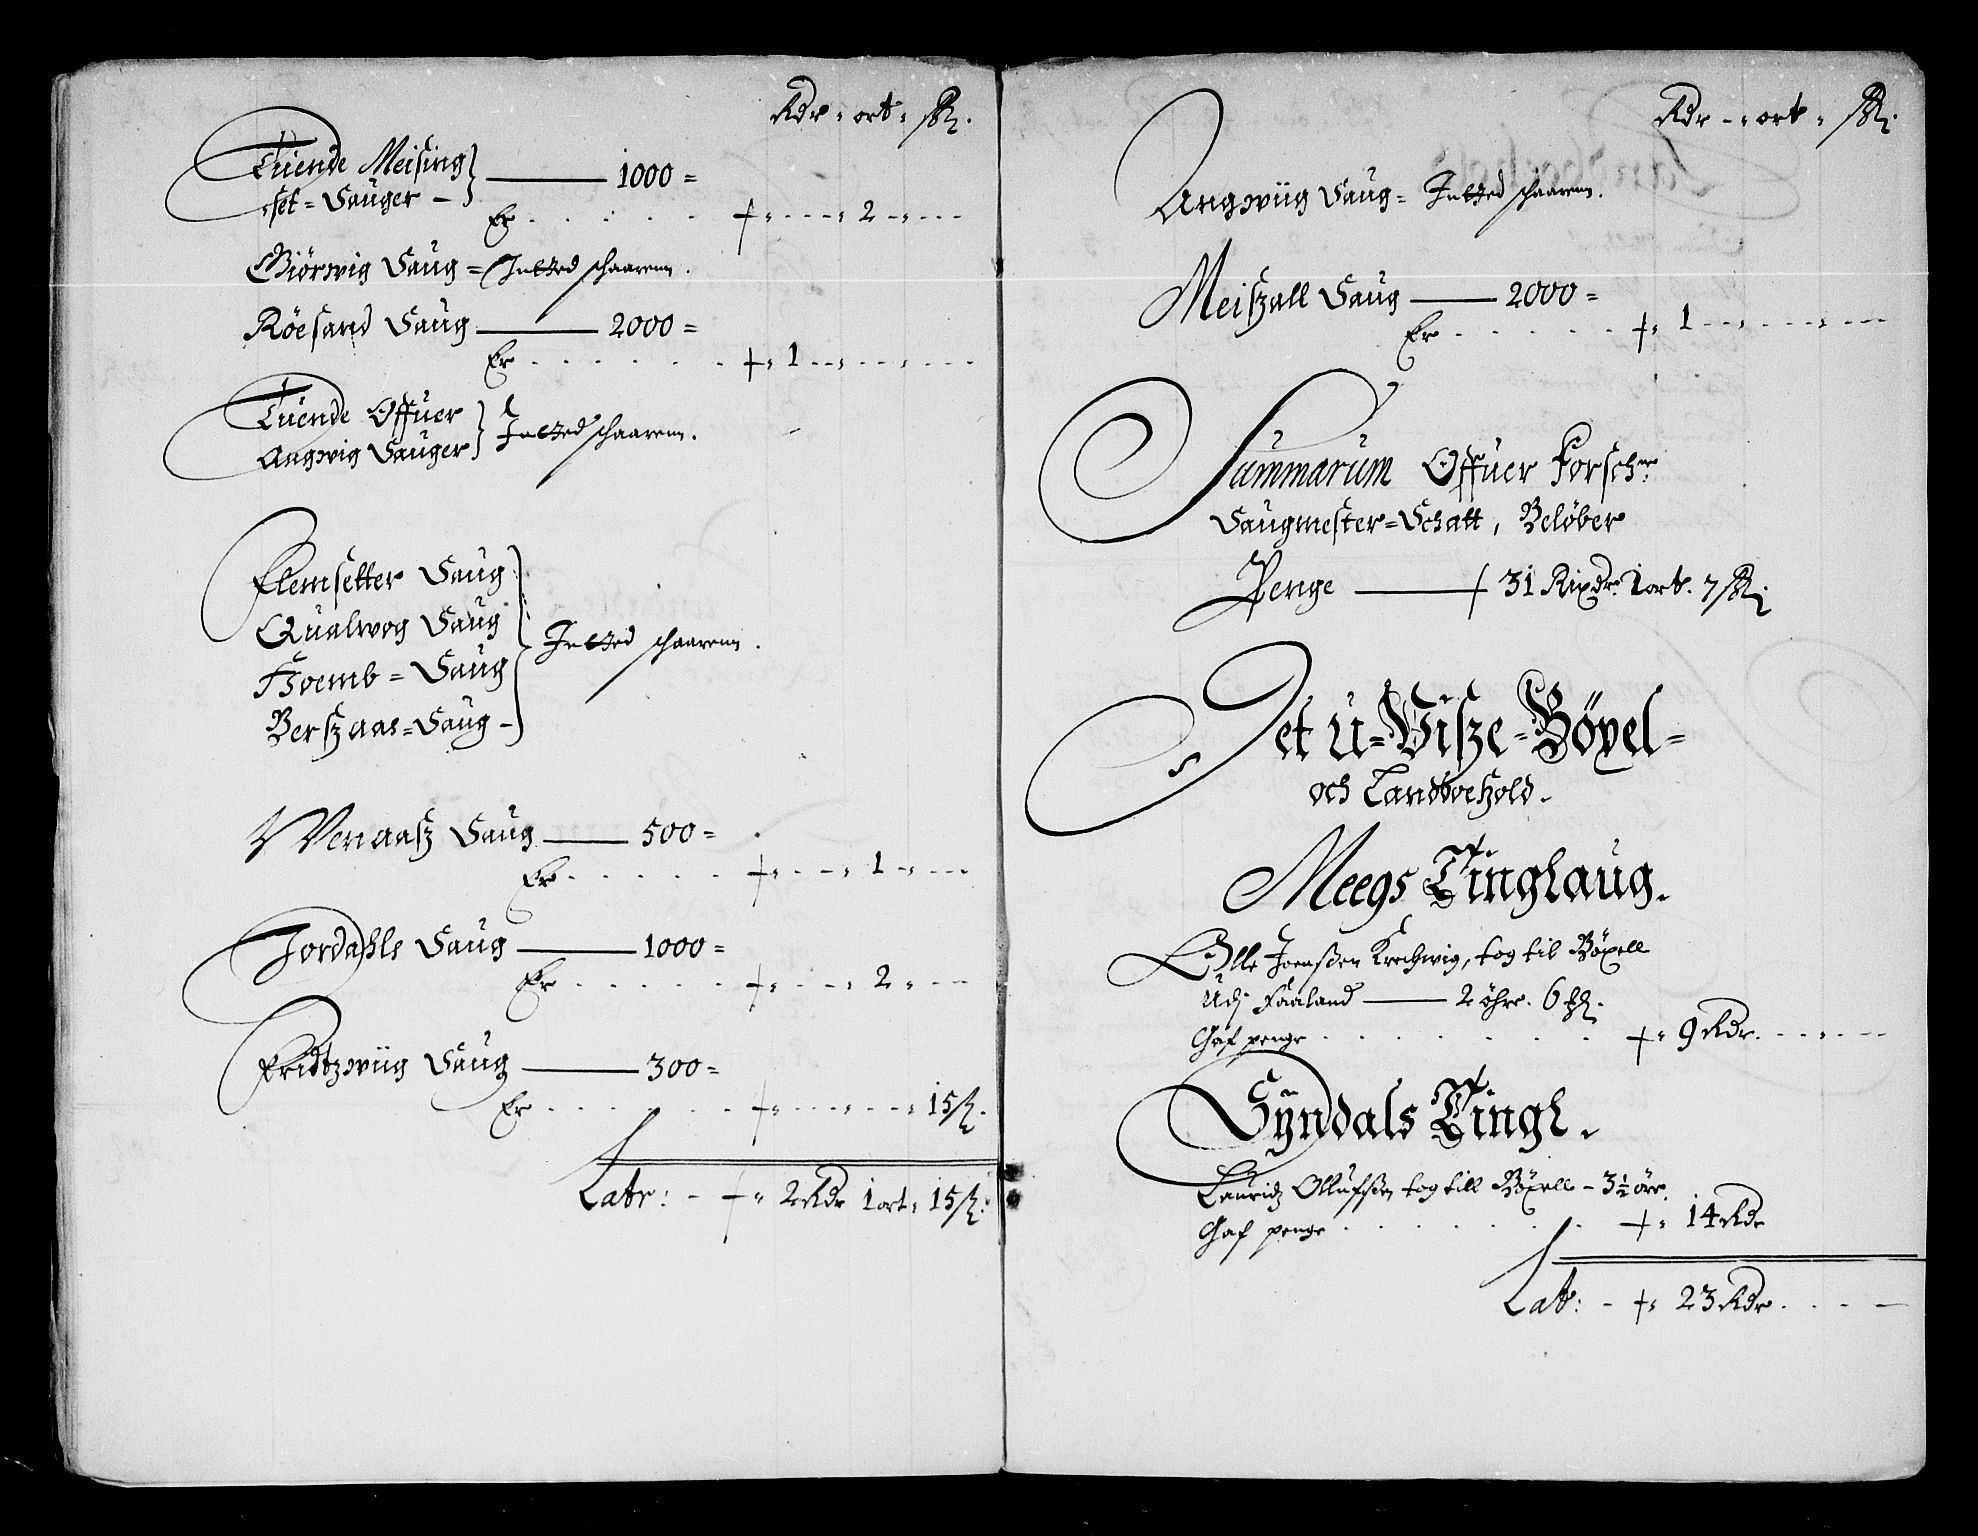 Rdr - ort - sk.
Tuende Meising
set = Sauger - 1000 =
Er . . . . . + - - - 2 - - -
Giörwig Saug = Inted schaarenn.
Röesand Saug — 2000 =
Er . . . . . + 1 - - - - - -
Tuende Offuer
Angwig Sauger Inted schaarenn.
Elemsetter Saug
Qualwog Saug
Hoemb = Saug
Berszaas = Saug - Inted schaarenn.
Wenaasz Saug — 500 =
Er . . . . . + - - - 1 - - -
Jordahls Saug — 1000 =
Er . . . . . + - - - 2 - - -
Fridtzwiig Saug — 300 =
Er . . . . . + - - - - - - 15 sk.
Latr: - + 2 Rdr 1 ort 15 sk:
Rdr - ort - sk.
Angwiig Saug = Inted schaarenn.
Meiszall Saug — 2000 =
Er . . . . . + 1 - - - - - -
Summarum Offuer Forschr:
Saugmester = Schatt, Belöber
Penge — + 31 Rixdr. 1 ort. 7 sk.
Det U = Visze = Böxel =
och Landboehold.
Meegs Tinglaug.
Olle Joenssen Krechwig, tog til Böxell
Udj Faaland — 2 öhre. 6
Gaf penge . . . . . + 9 Rdr. - - - -
Syndals Tingl.
Lauridz Ollufssen tog till Böxell - 3½ örr.
Gaf penge . . . . . + 14 Rdr
Lat: - + 23 Rdr. . . -